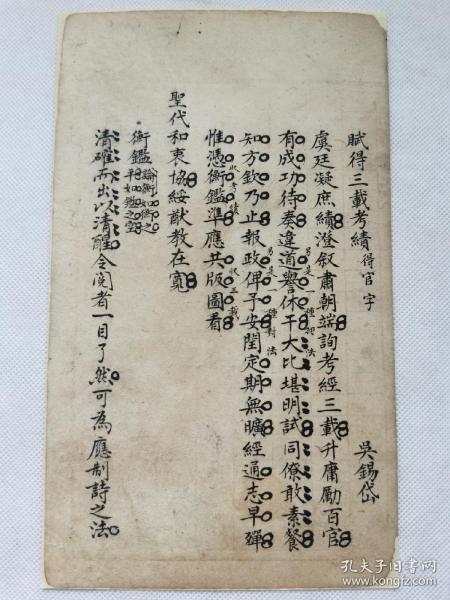 賦得三載考績得官字
吳錫岱
虞廷凝庶績澄叙肅朝端詢考經三載升庸勵百官
有成功待奏違道譽休干大比堪明試同僚敢素餐
知方欽乃止報政俾予安閏定期無曠經通志早殫
惟憑衡鑑準應共版圖看
聖代和衷協綏猷教在寬
衡鑑論衡如衡之平如鑑之空
清確而出以清醒令閱者一目了然可為應制詩之法
孔夫子旧书网
www.kongfz.com